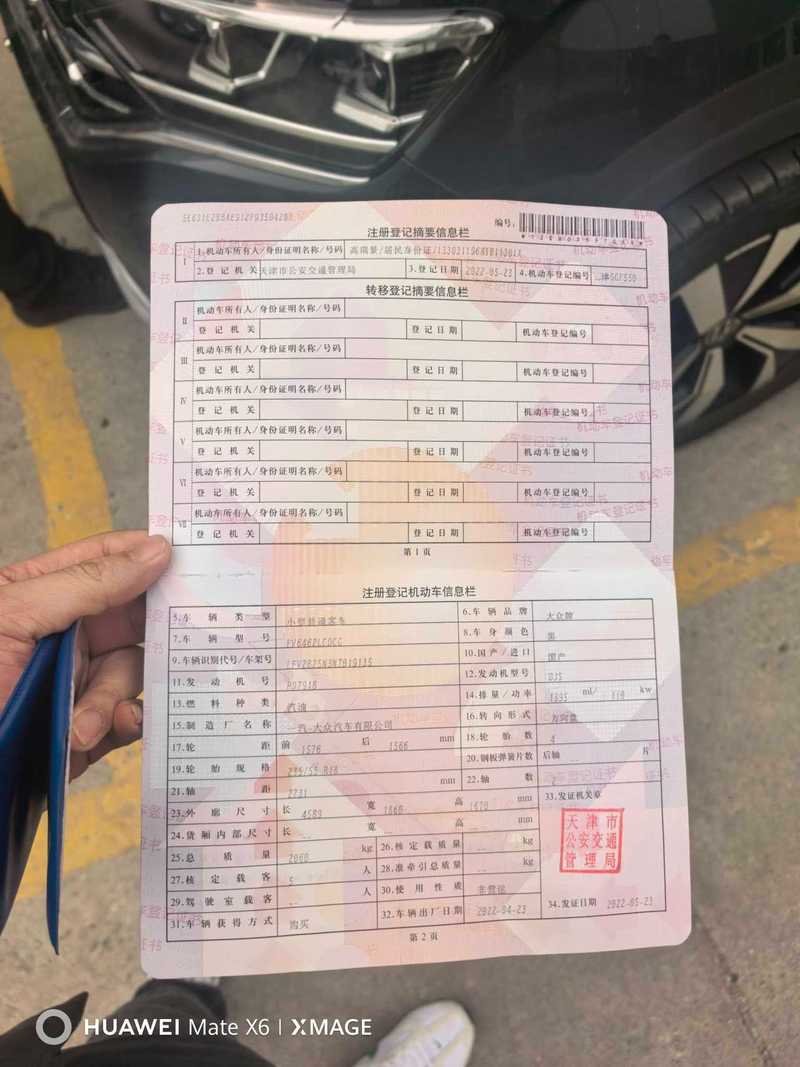 编号:
注册登记摘要信息栏
I 1.机动车所有人/身份证明名称/号码 高瑞景/居民身份证/
2.登记机关 天津市公安交通管理局 3.登记日期 2022-05-23 4.机动车登记编号
转移登记摘要信息栏
II 机动车所有人/身份证明名称/号码
登记机关 登记日期 机动车登记编号
III 机动车所有人/身份证明名称/号码
登记机关 登记日期 机动车登记编号
IV 机动车所有人/身份证明名称/号码
登记机关 登记日期 机动车登记编号
V 机动车所有人/身份证明名称/号码
登记机关 登记日期 机动车登记编号
VI 机动车所有人/身份证明名称/号码
登记机关 登记日期 机动车登记编号
VII 机动车所有人/身份证明名称/号码
登记机关 登记日期 机动车登记编号
第1页
注册登记机动车信息栏
5.车辆类型 小型普通客车 6.车辆品牌 大众牌
7.车辆型号 8.车身颜色 黑
9.车辆识别代号/车架号 10.国产/进口 国产
11.发动机号 12.发动机型号 DJS
13.燃料种类 汽油 14.排量/功率 ml/ kw
15.制造厂名称 一汽-大众汽车有限公司 16.转向形式 方向盘
17.轮距 前 1576 后 1566 mm 18.轮胎数 4
19.轮胎规格 20.钢板弹簧片数 后轴 -- 片
21.轴距 2731 mm 22.轴数 2
23.外廓尺寸 长 4589 宽 1860 高 mm 33.发证机关章
24.货厢内部尺寸 长 -- 宽 -- 高 -- mm
25.总质量 kg 26.核定载质量 -- kg
27.核定载客 5 人 28.准牵引总质量 -- kg
29.驾驶室载客 -- 人 30.使用性质 非营运
31.车辆获得方式 购买 32.车辆出厂日期 2022-04-23 34.发证日期 2022-05-23
天津市
公安交通
管理局
第2页
HUAWEI Mate X6 | XMAGE